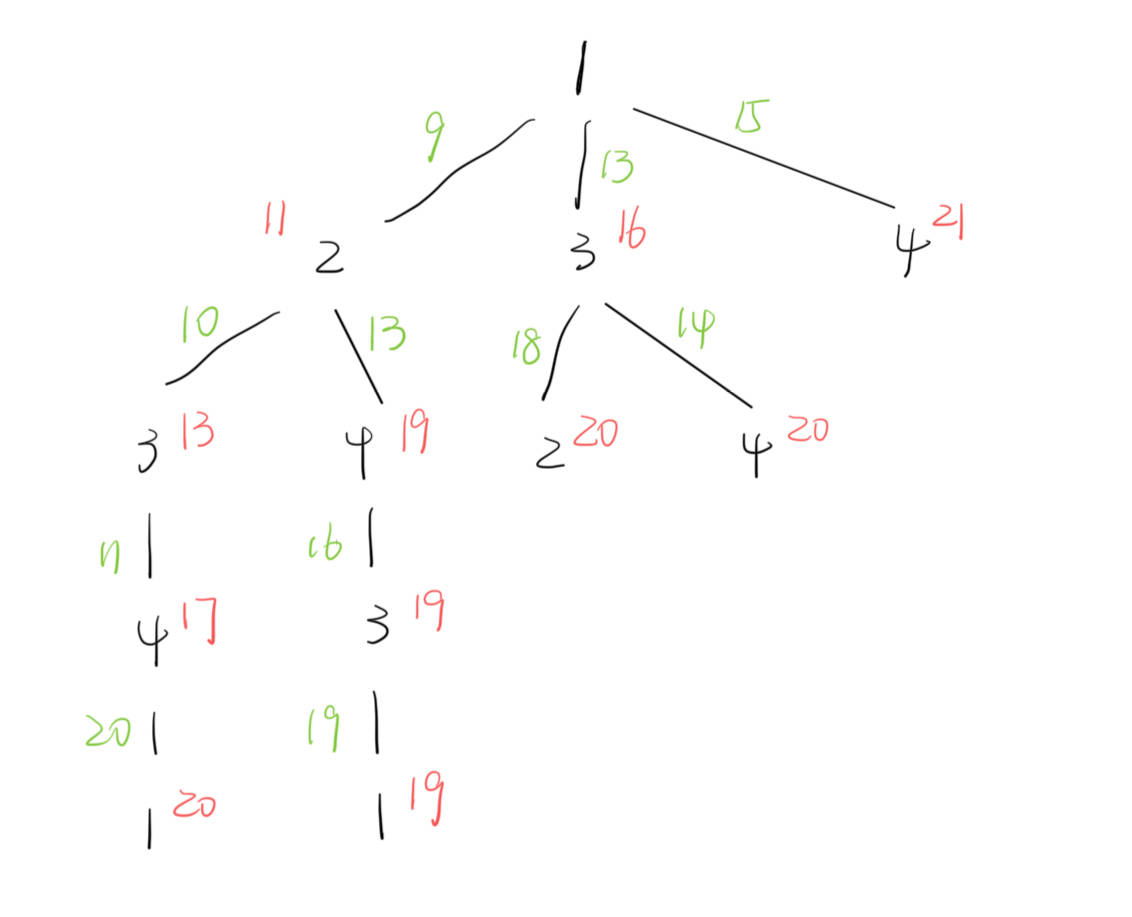 1
9 13 15
11 2 3 16 4 21
10 13 18 14
3 13 4 19 2 20 4 20
11 16
4 17 3 19
20 19
1 20 1 19